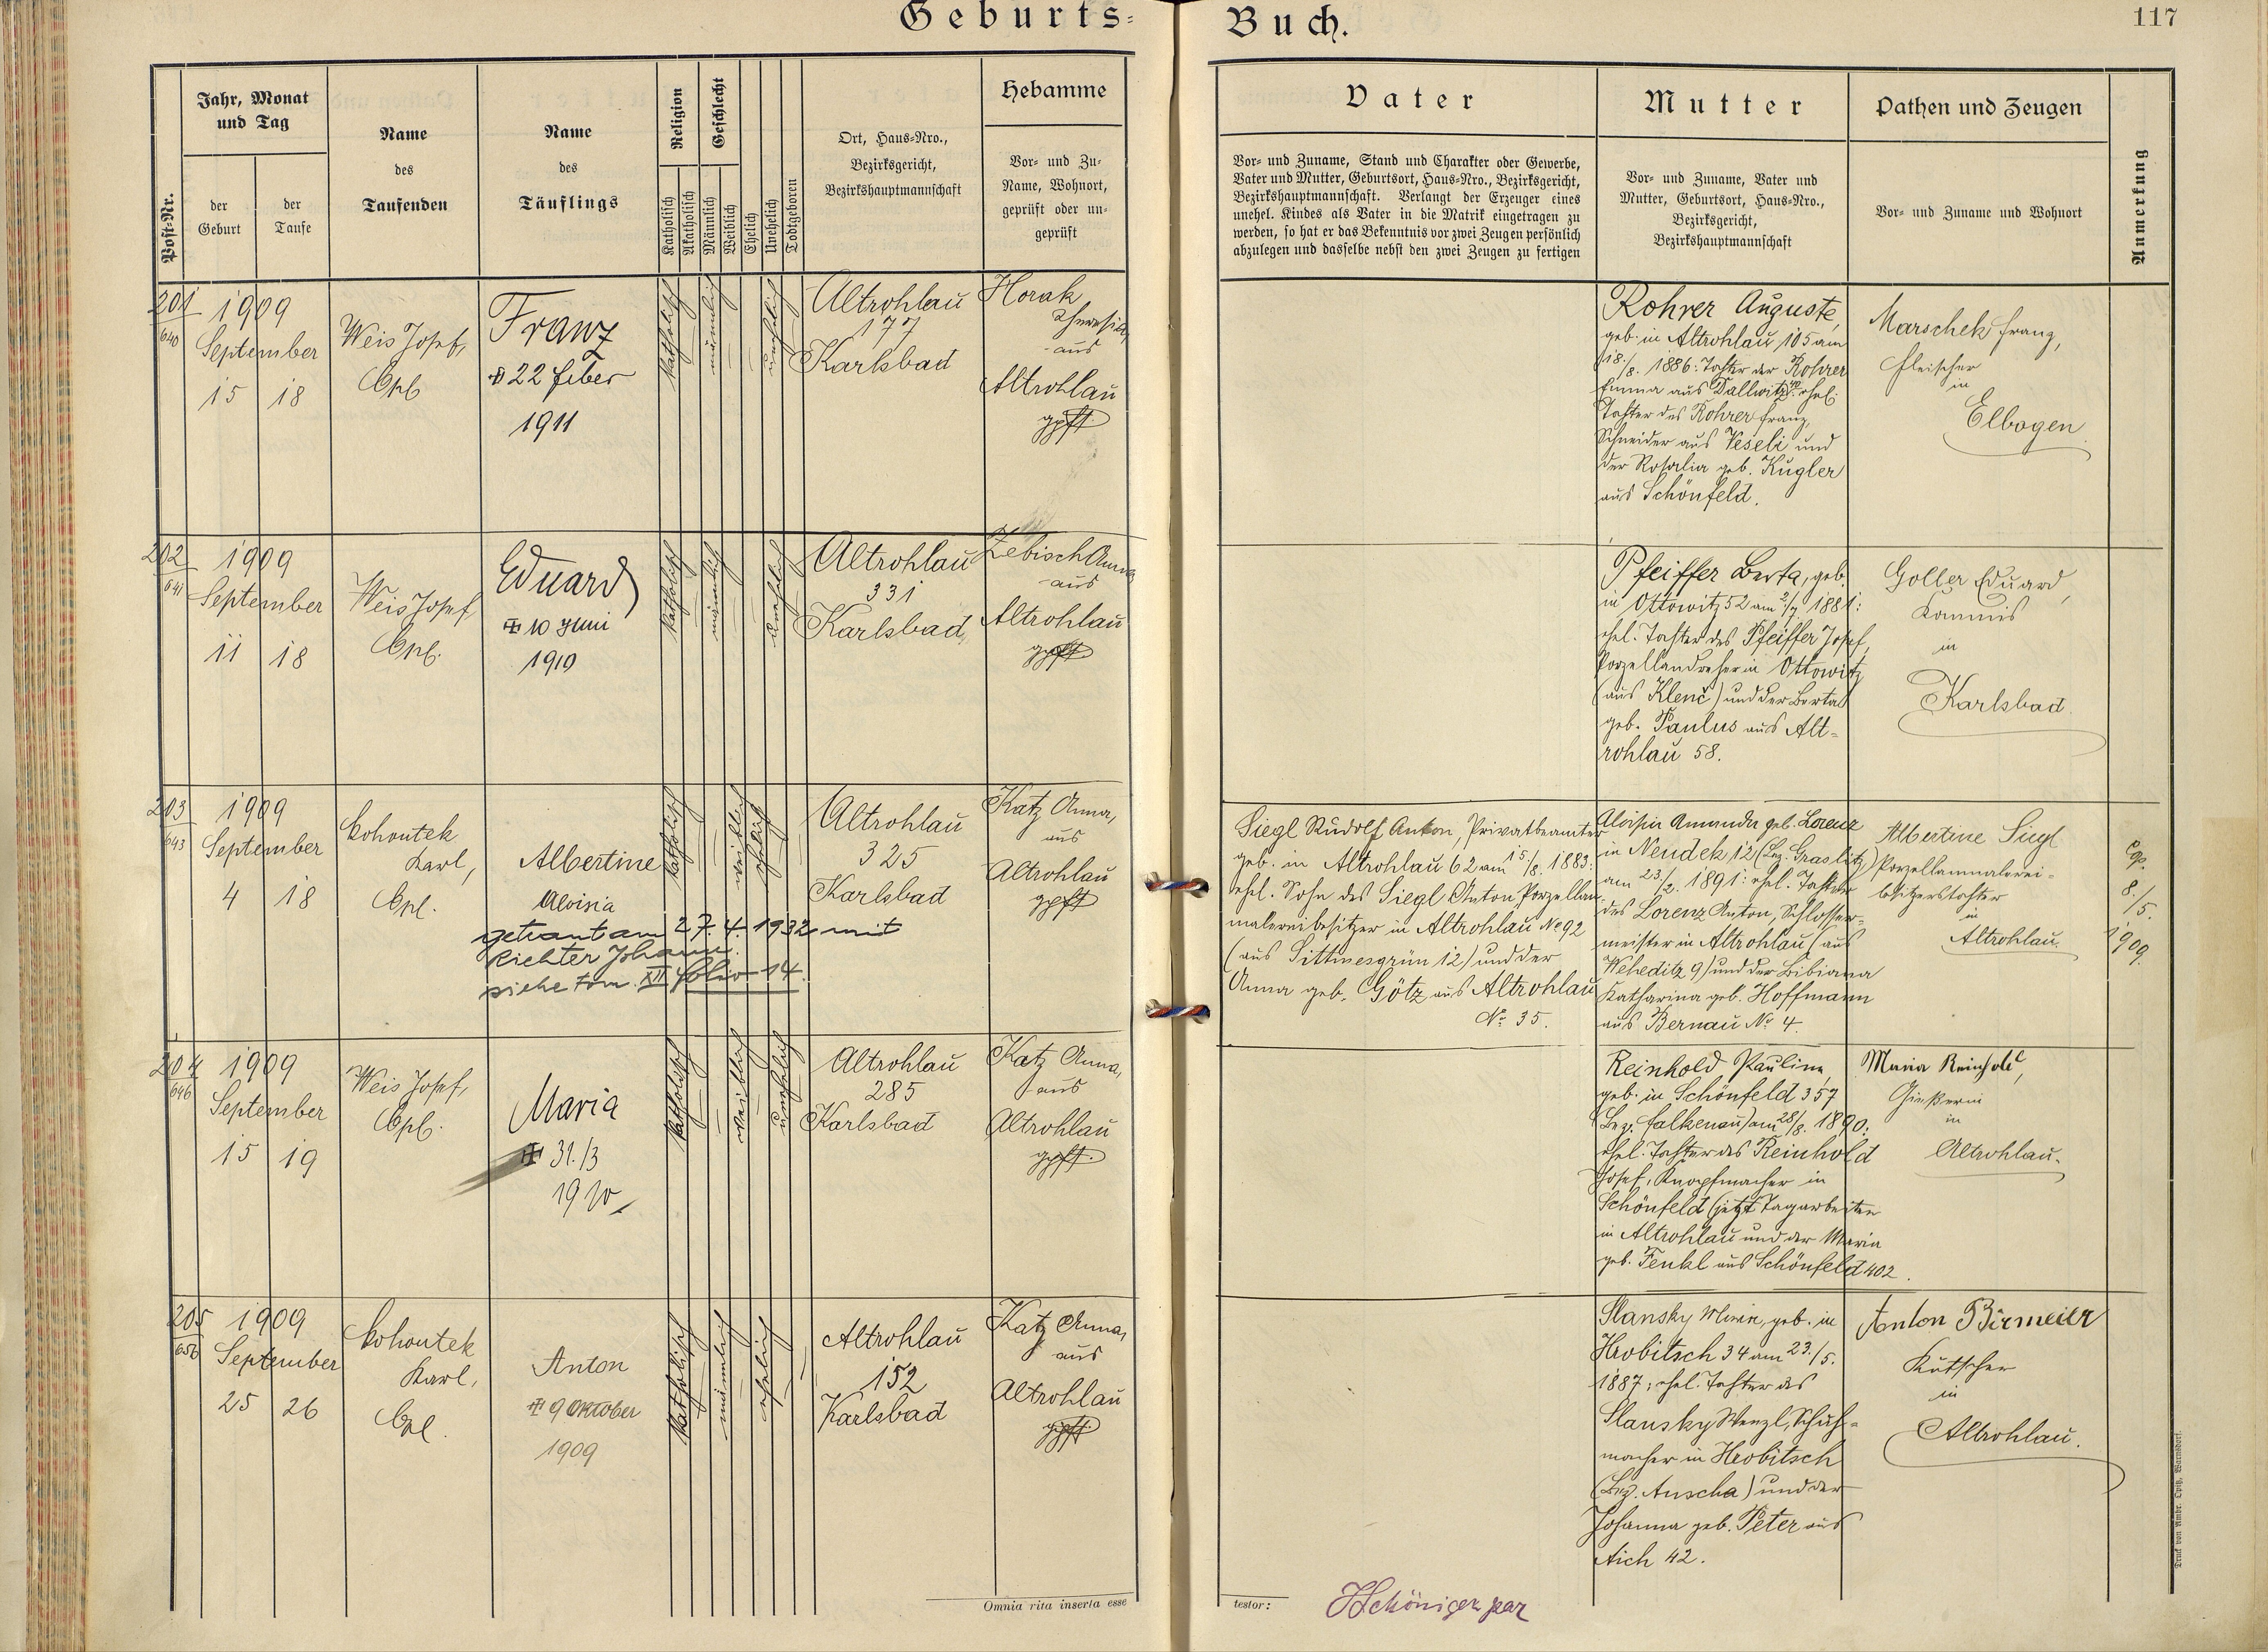 Geburts-
Buch.
117
Post-Nr.
Jahr, Monat
und Tag
der
Geburt
der
Taufe
Name
des
Taufenden
Name
des
Täuflings
Religion
Katholisch
Akatholisch
Geschlecht
Männlich
Weiblich
Ehelich
Unehelich
Todtgeboren
Ort, Haus-Nro.,
Bezirksgericht,
Bezirkshauptmannschaft
Hebamme
Vor- und Zu-
Name, Wohnort,
geprüft oder un-
geprüft
Vater
Vor- und Zuname, Stand und Charakter oder Gewerbe,
Vater und Mutter, Geburtsort, Haus-Nro., Bezirksgericht,
Bezirkshauptmannschaft. Verlangt der Erzeuger eines
unehel. Kindes als Vater in die Matrik eingetragen zu
werden, so hat er das Bekenntnis vor zwei Zeugen persönlich
abzulegen und dasselbe nebst den zwei Zeugen zu fertigen
Mutter
Vor- und Zuname, Vater und
Mutter, Geburtsort, Haus-Nro.,
Bezirksgericht,
Bezirkshauptmannschaft
Pathen und Zeugen
Vor- und Zuname und Wohnort
Anmerkung
201
640
1909
September
15 18
Weis Josef,
Cpl.
Franz
22 feber
1911
katholisch
männlich
unehelich
Altrohlau
177
Karlsbad
Horak
Theresia,
aus
Altrohlau
gpft
Rohrer Auguste,
geb. in Altrohlau 105 am
18./8. 1886: Tochter der Rohrer
Emma aus Dallwitz, ehel.
Tochter des Rohrer Franz,
Schneider aus Veseli und
der Rosalia geb. Kugler
aus Schönfeld.
Marschek Franz,
Fleischer
in
Elbogen
202
641
1909
September
11 18
Weis Josef
Cpl.
Eduard
10 Juni
1910
katholisch
männlich
unehelich
Altrohlau
331
Karlsbad
Zebisch Anna
aus
Altrohlau
gpft
Pfeiffer Berta, geb.
in Ottowitz 52 am 2/7 1881:
ehel. Tochter des Pfeiffer Josef,
Porzellandreher in Ottowitz
(aus Klenč) und der Berta
geb. Paulus aus Alt-
rohlau 58.
Goller Eduard,
Kommis
in
Karlsbad
203
643
1909
September
4 18
Kohoutek
Karl,
Cpl.
Albertine
Aloisia
getraut am 27. 4. 1932 mit
Richter Johann.
siehe tom. XII folio 14.
katholisch
weiblich
ehelich
Altrohlau
325
Karlsbad
Katz Anna,
aus
Altrohlau
gpft
Siegl Rudolf Anton, Privatbeamter
geb. in Altrohlau 62 am 15./8. 1883:
ehel. Sohn des Siegl Anton, Porzellan-
malereibesitzer in Altrohlau No 92
(aus Sittmesgrün 12) und der
Anna geb. Götz aus Altrohlau
No 35.
Aloisia Amanda geb. Lorenz
in Neudek 12 (Bez. Graslitz)
am 23/2. 1891: ehel. Tochter
des Lorenz Anton, Schlosser-
meister in Altrohlau (aus
Weheditz 9) und der Bibiana
Katharina geb. Hoffmann
aus Bernau No 4.
Albertine Siegl
Porzellanmalerei-
besitzerstochter
in
Altrohlau.
cop.
8/5.
1909.
204
646
1909
September
15 19
Weis Josef,
Cpl.
Maria
31./3
1910
katholisch
weiblich
unehelich
Altrohlau
285
Karlsbad
Katz Anna,
aus
Altrohlau
gpft.
Reinhold Pauline,
geb. in Schönfeld 357
(Bez. Falkenau) am 28/8. 1890:
ehel. Tochter des Reinhold
Josef, Knopfmacher in
Schönfeld (jetzt Tagarbeiter
in Altrohlau und der Maria
geb. Fenkl aus Schönfeld 402.
Maria Reinhold,
Gießerin
in
Altrohlau.
205
656
1909
September
25 26
Kohoutek
Karl,
Cpl.
Anton
9 Oktober
1909
katholisch
männlich
ehelich
Altrohlau
152
Karlsbad
Katz Anna,
aus
Altrohlau
gpft
Slansky Maria, geb. in
Hrobitsch 34 am 23./5.
1887; ehel. Tochter des
Slansky Wenzl, Schuh-
macher in Hrobitsch
(Bez. Auscha) und der
Johanna geb. Peter aus
Aich 42.
Anton Birmeier
Kutscher
in
Altrohlau.
Omnia rita inserta esse
testor:
Druck von Ambr. Opitz, Warnsdorf.